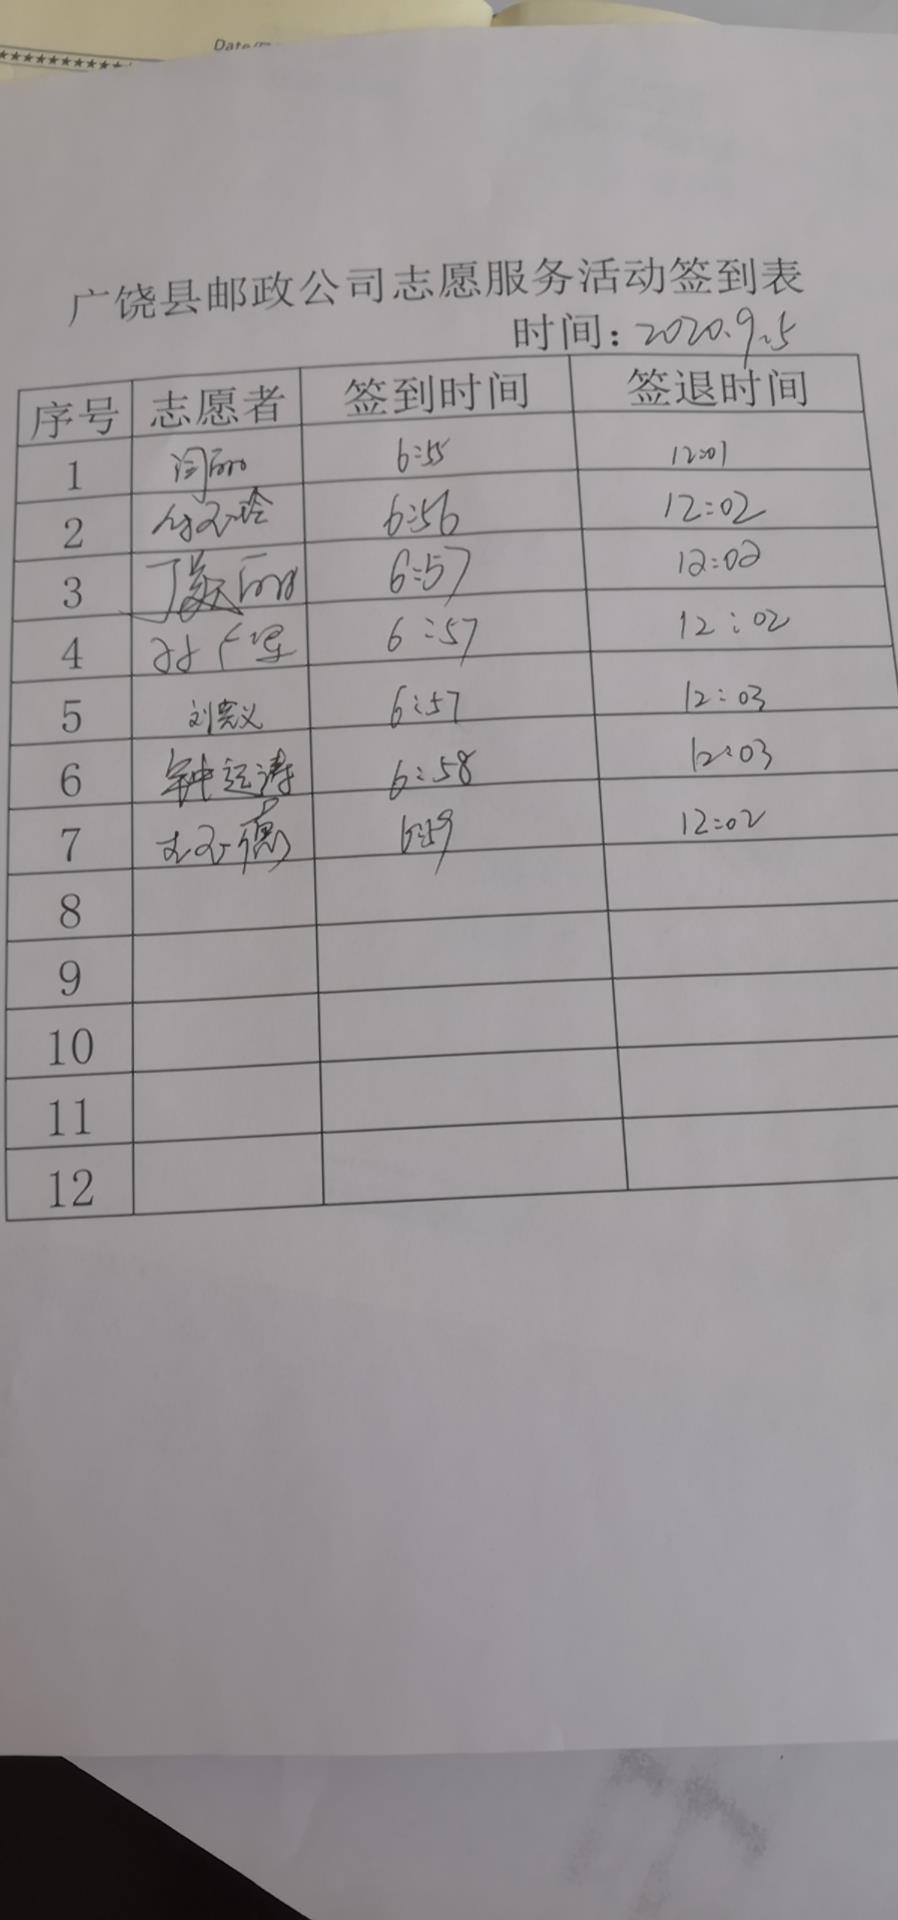 Date/
广饶县邮政公司志愿服务活动签到表
时间：2020.9.5
序号 志愿者 签到时间 签退时间
1 闫丽 6:55 12:01
2 6:56 12:02
3 丁美丽 6:57 12:02
4 6:57 12:02
5 刘宪义 6:57 12:03
6 钟运涛 6:58 12:03
7 6:59 12:02
8
9
10
11
12